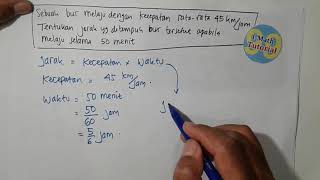 Sebuah bus melaju dengan kecepatan rata-rata 45 km/jam
Tentukan jarak yg ditempuh bus tersebut apabila
melaju selama 50 menit
I Math
Tutorial
Jarak = Kecepatan × Waktu
Kecepatan = 45 km/jam.
Waktu = 50 menit
= 50/60 jam
= 5/6 jam.
J